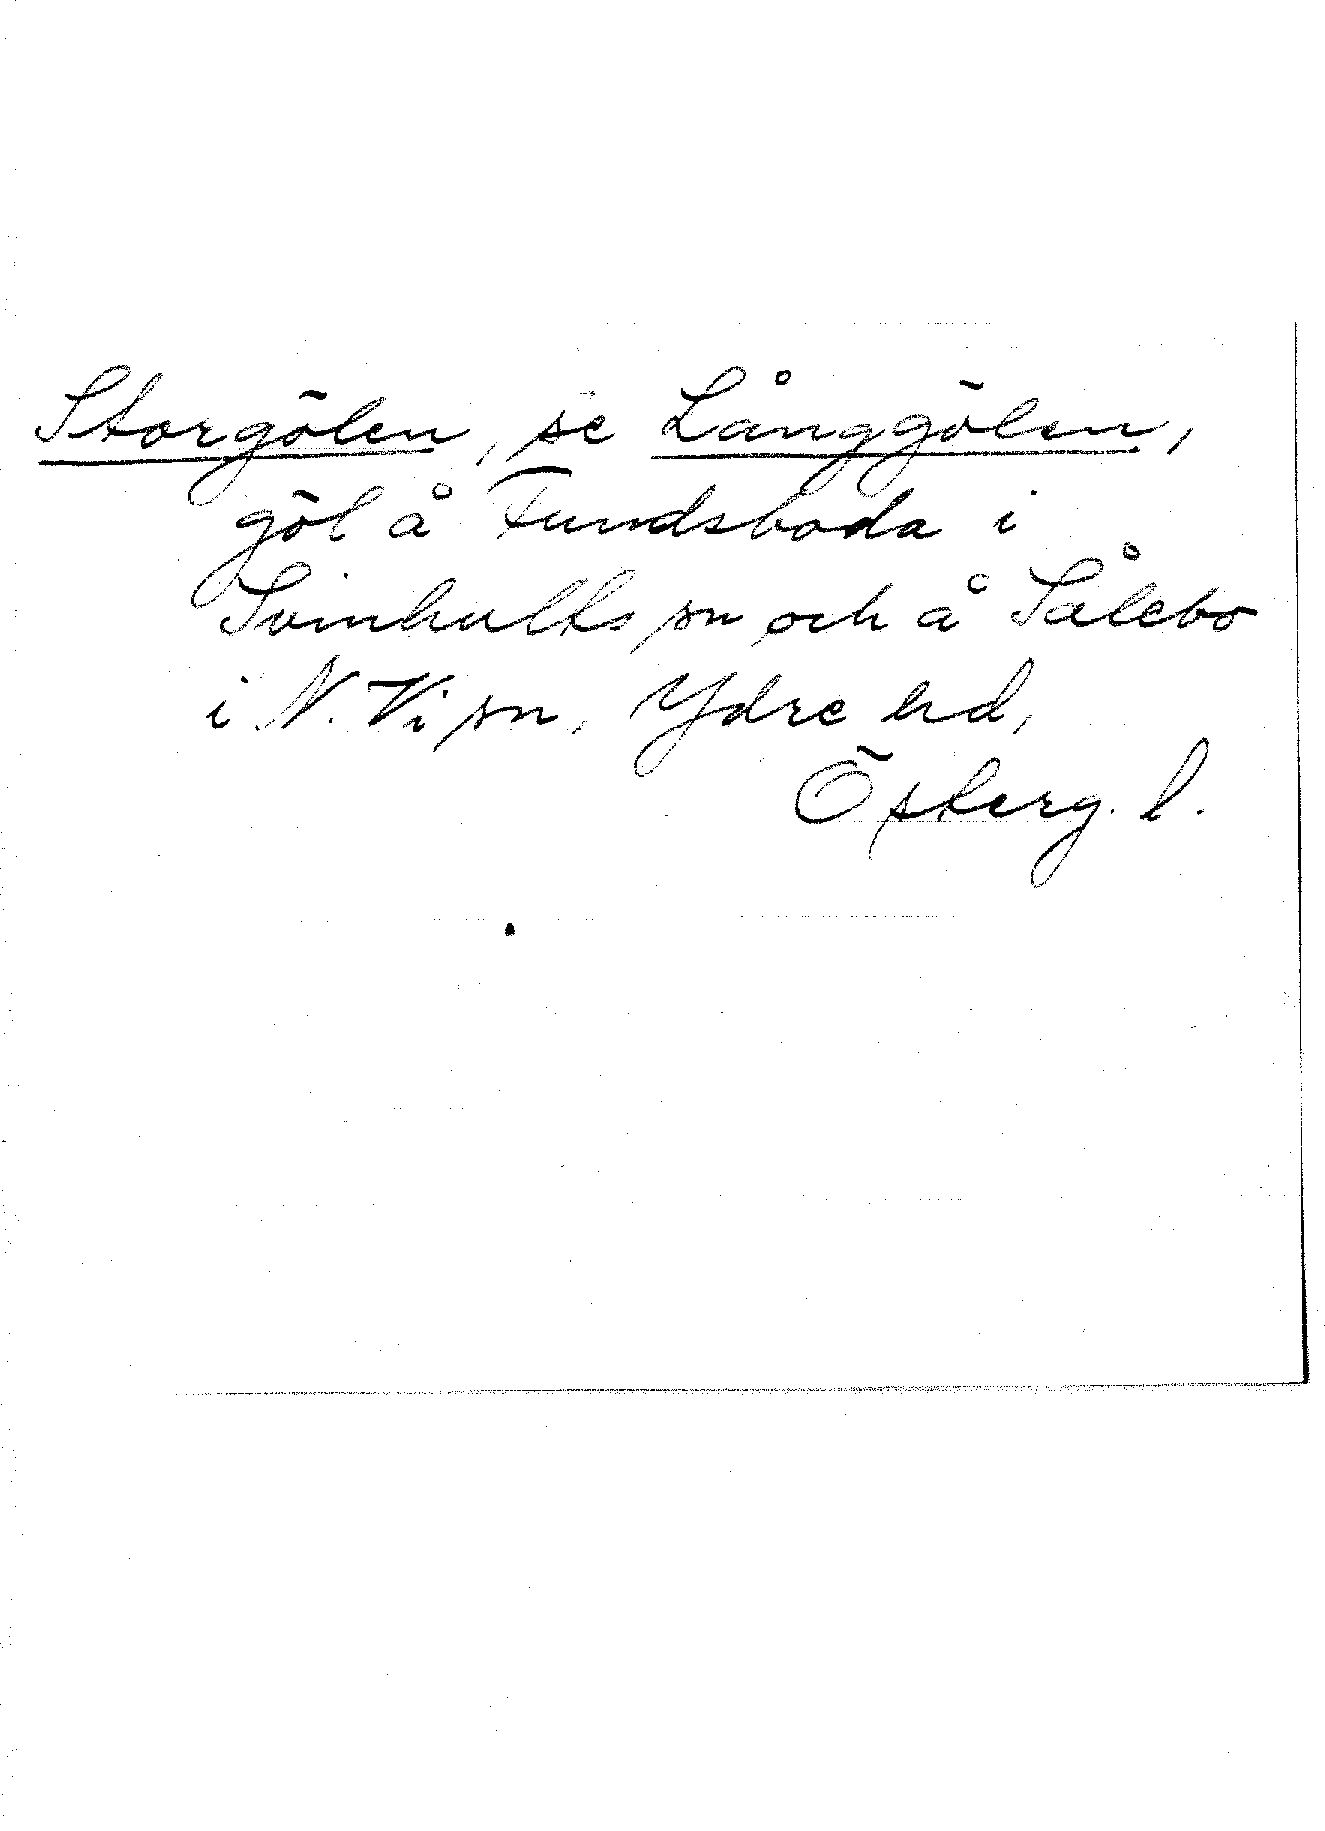 Storgölen, se Långgölen,
göl å Fundsboda i
Svinhults sn och å Sålebo
i N. Vi sn, Ydre hd,
Österg. l.